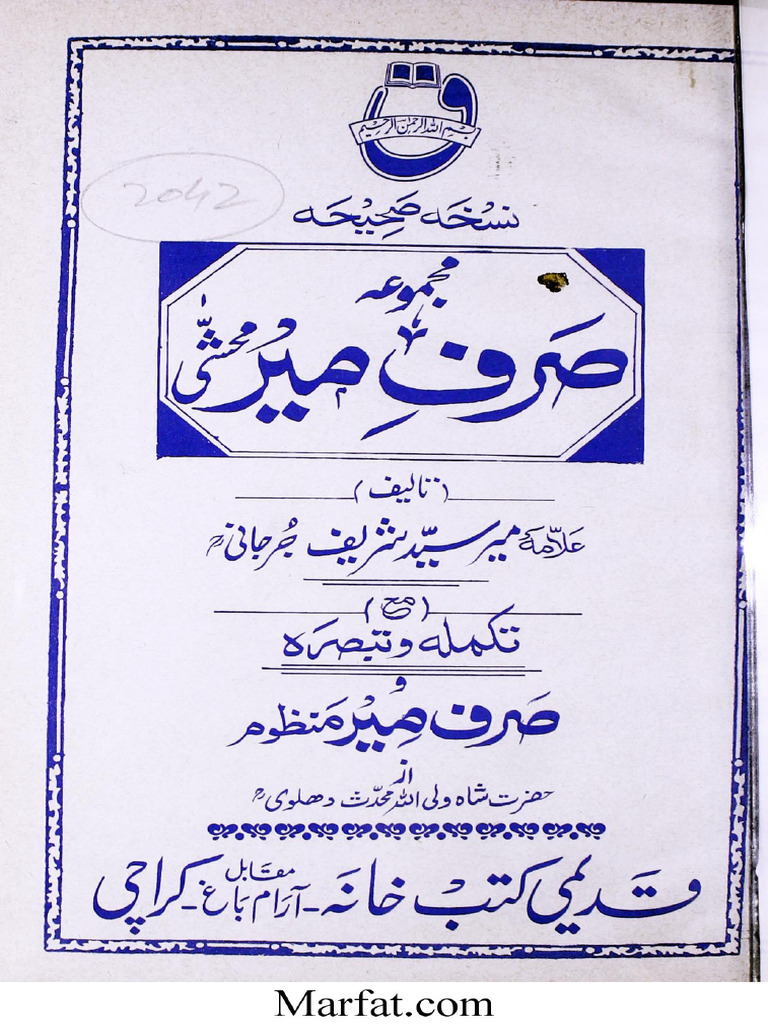 بسم الله الرحمن الرحیم
2042
نسخه صحیحه
مجموعه
صرفِ میر محشّٰی
(تالیف)
علّامۂ میر سیّد شریف جُرجانی ؒ
(مع)
تکمله و تبصره
و
صرف مِیر منظوم
از
حضرت شاه ولی الله محدّث دهلوی ؒ
قدیمی کتب خانه - مقابل آرام باغ - کراچی
Marfat.com